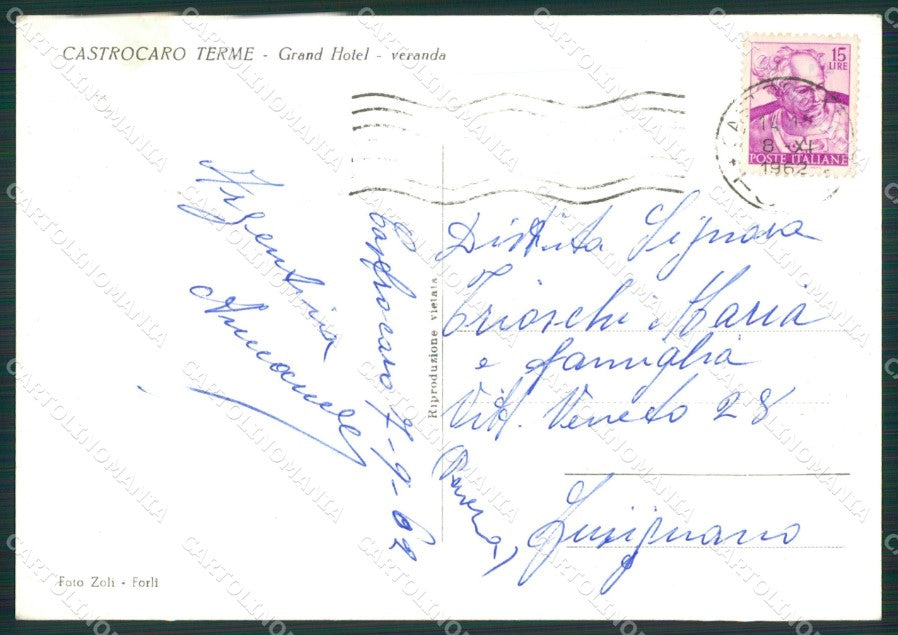 CASTROCARO TERME - Grand Hotel - veranda
15
LIRE
POSTE ITALIANE
14
8 - XI
1962
Argentina
Castrocaro 7-9-62
Riproduzione vietata
Distinta Signora
Trioschi Maria
e famiglia
Vitt. Veneto 28
(Ravenna)
Fusignano
Foto Zoli - Forlì
CARTOLINOMANIA